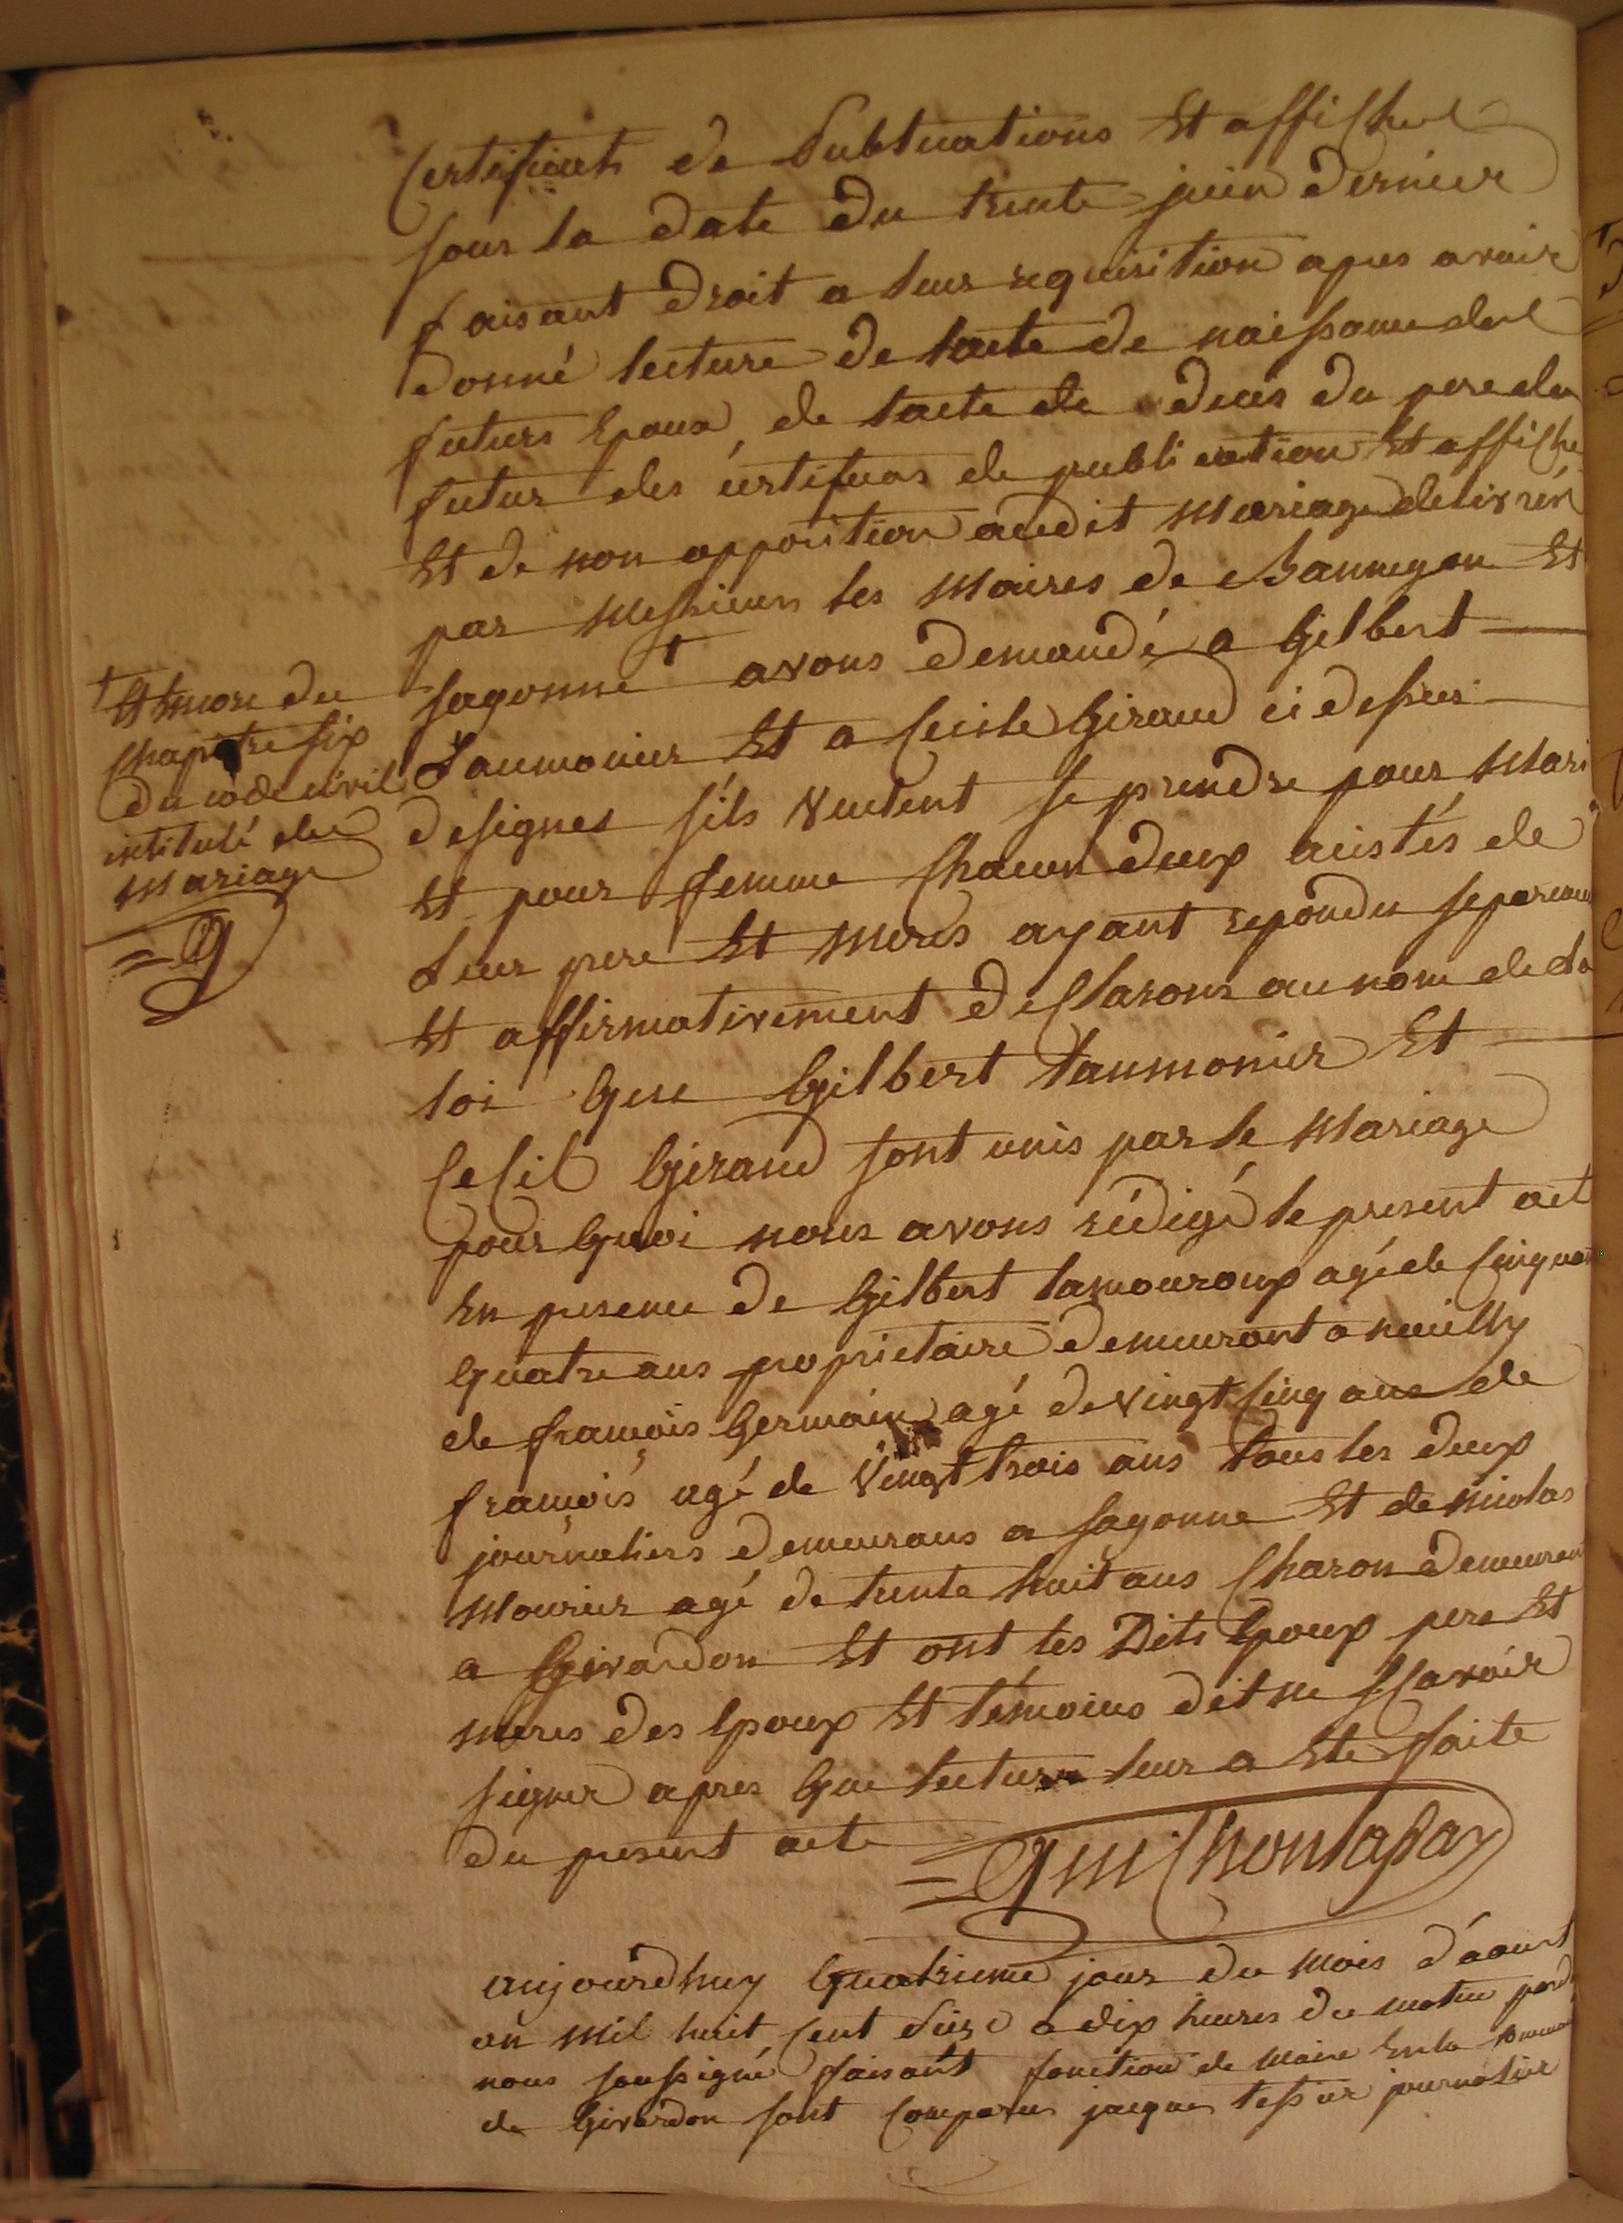 Certificats de Publications Et affiches
sous la date du trente juin dernier
faisant droit a leur requisition apres avoir
donné lecture de lacte de naissance des
futurs Epoux de lacte de deces du pere du
futur des certificas de publication Et affiche
Et de non opposition audit mariage delivrés
par messieurs les maires de Bannegon Et
sagonne † avons demandé a Gilbert
† Et encore du
chapitre six
du code civil
intitulé du
mariage
Laumonier Et a Cecile Giraud ci dessus
designes s'ils veulent se prendre pour mari
Et pour femme chacun deux acistés de
Leur pere Et meres ayant repondu separement
Et affirmativement declarons au nom de la
loi que Gilbert laumonier Et
Cecil Giraud sont unis par le mariage
pour quoi nous avons rédigé le present act
En presence de Gilbert lamouroux agé de cinquante
quatre ans proprietaire demeurant a neuilly
de francois Germain agé de vingt cinq ans de
francois agé de vingt trois ans tous les deux
journaliers demeurans a sagonne Et de nicolas
mourier agé de trente huit ans charon demeurant
a Givardon Et ont les Dits Epoux pere Et
meres des Epoux Et témoins dit ne scavoir
signer apres que lecture leur a Eté faite
du present acte
aujourdhuy quatrieme jour du mois d'aoust
an mil huit cent dix a dix heures du matin pard
nous soussigné faisant fonction de maire En la commune
de Givardon sont comparus jacques tessier journalier